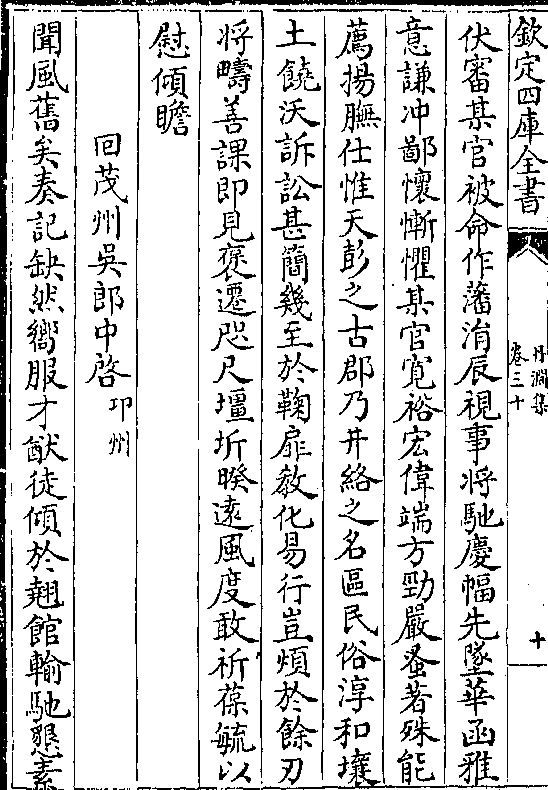 欽定四庫全書
丹淵集
卷三十
十
伏審某官被命作藩涓辰視事将馳慶幅先墜華函雅
意謙冲鄙懷慚懼某官寛裕宏偉端方勁嚴蚤著殊能
薦揚膴仕惟天彭之古郡乃井絡之名區民俗淳和壤
土饒沃訴訟甚簡幾至於鞠扉教化易行豈煩於餘刃
将疇善課即見褒遷咫尺壃圻暌逺風度敢祈葆毓以
慰傾瞻
回茂州吳郎中啓卭州
聞風舊矣奏記缺然嚮服才猷徒傾於翹館輸馳懇素